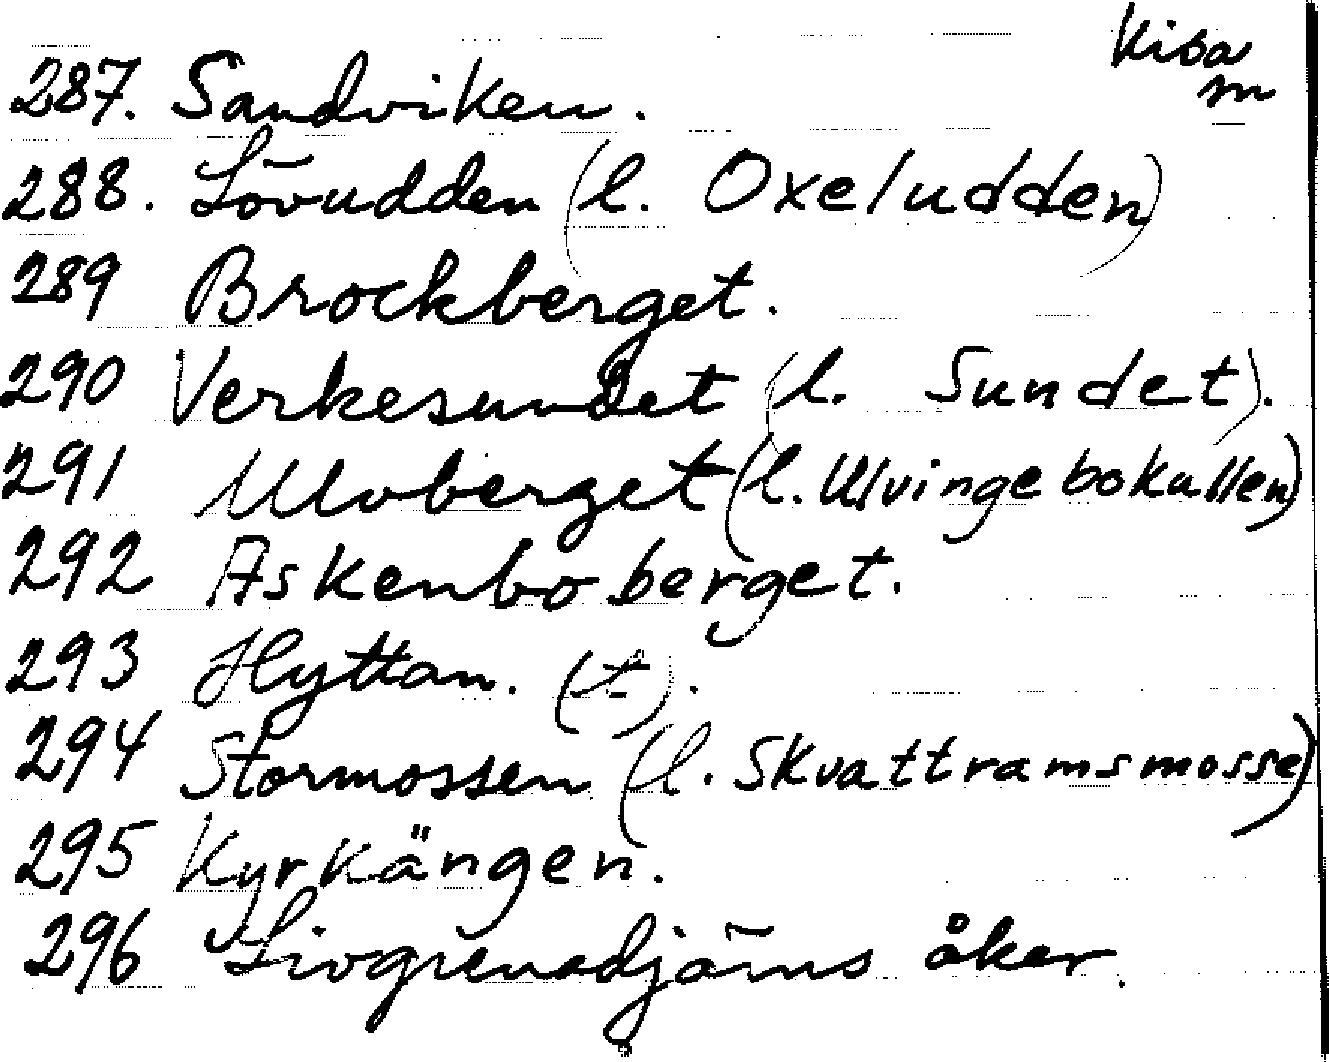 Kisa
sn
287. Sandviken.
288. Lövudden (l. Oxeludden)
289 Brockberget.
290 Verkesundet (l. Sundet).
291 Ulvberget (l. Ulvingebokullen)
292 Askenboberget.
293 Hyttan. (t).
294 Stormossen (l. Skvattramsmosse)
295 Kyrkängen.
296 Livgrenadjärns åker.